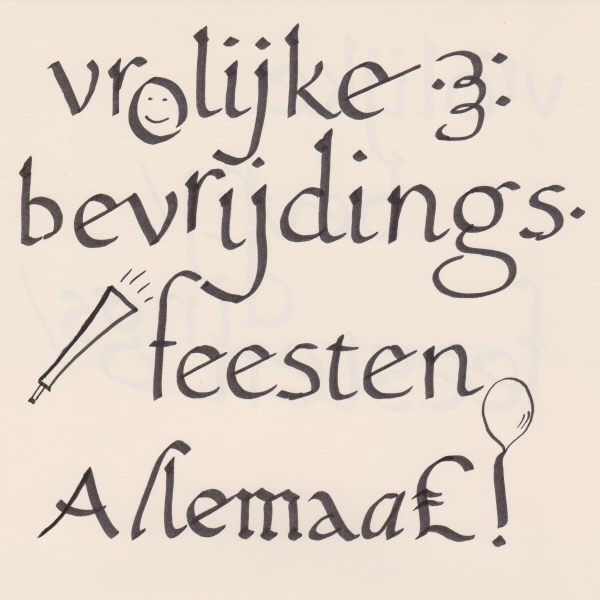 vrolijke
bevrijdings.
feesten
Allemaal!